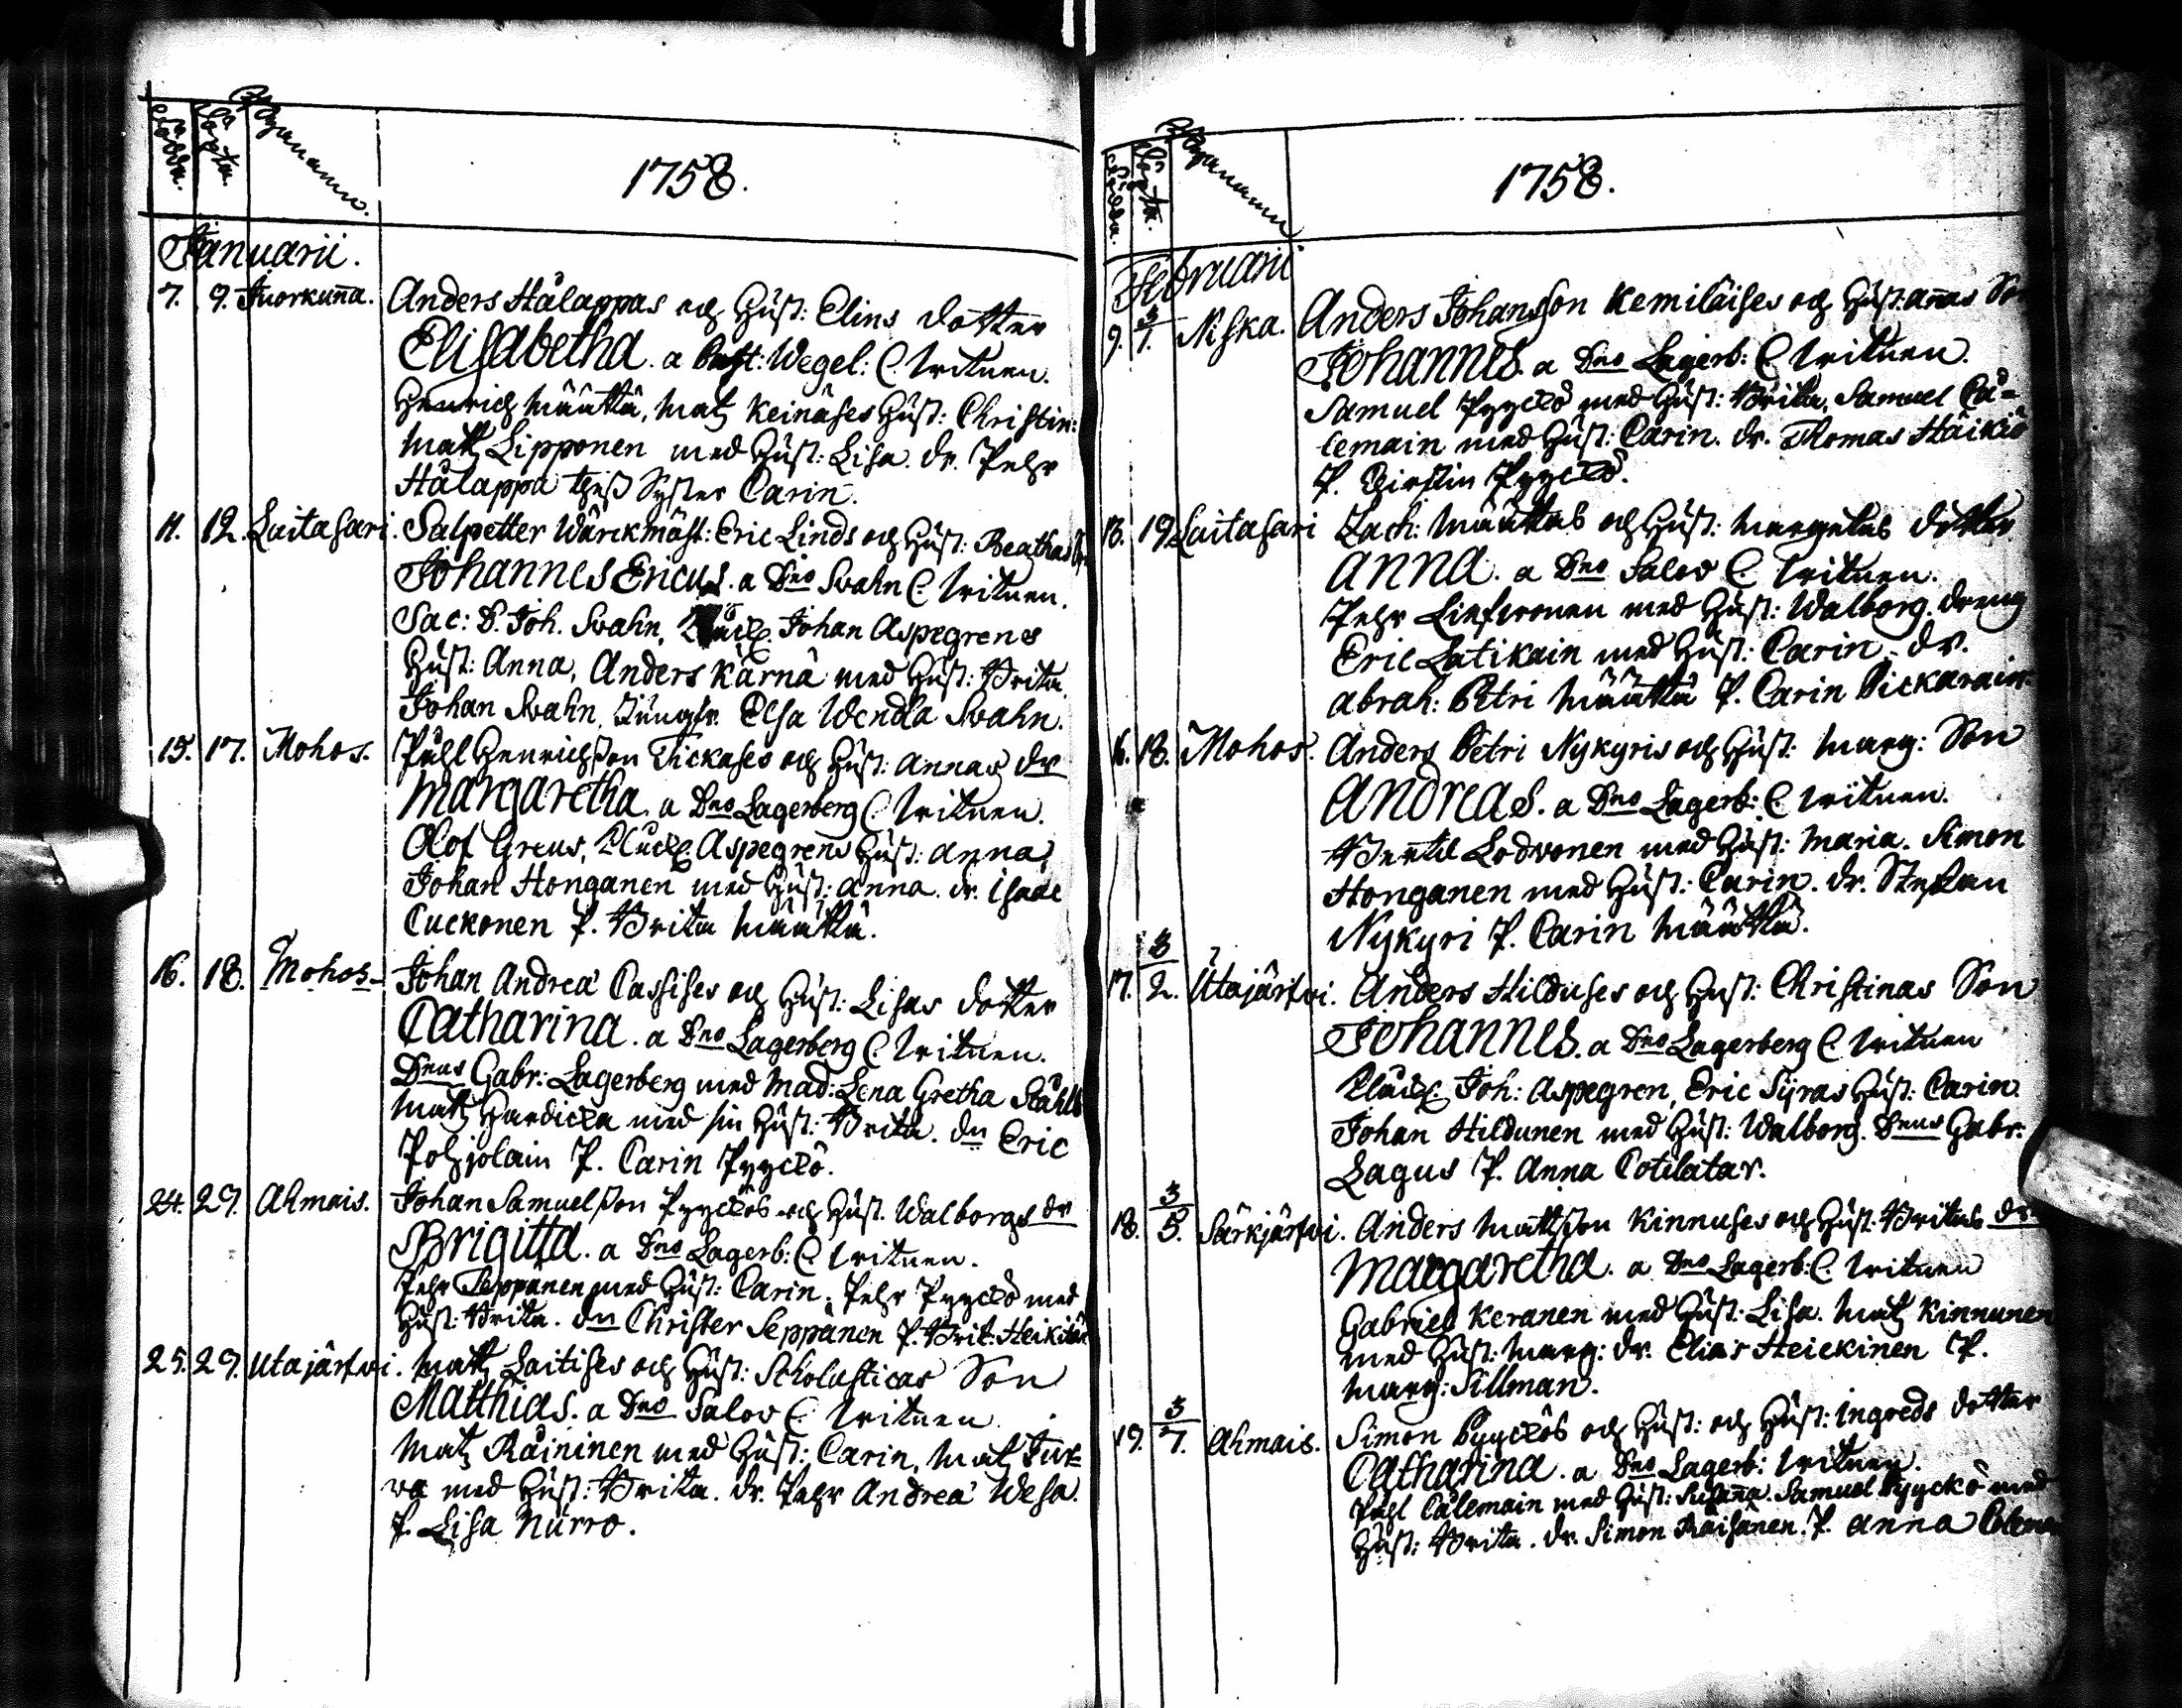 Födda. Döpta. Bynamn.
1758.
Januarii.
7. 9. Juorkuna. Anders Hålappas och Hust: Elins dotter
Elisabetha. a Past: Wegel: C. Witnen.
Henrich Määttä, Matz Keinäses Hust: Christin:
Matz Lipponen med Hust: Lisa. dr. Pehr
Hålappa thess Syster Carin.
11. 12. Laitasari. Salpetter Wärckmäst: Eric Linds och Hust: Beathas
Johannes Ericus. a Dno Svahn C. Witnen.
Sac: D. Joh. Svahn, Johan Aspegrens
Hust: Anna, Anders Kärnä med Hust: Brita
Johan Svahn, Jungfr. Elsa Wendla Svahn.
15. 17. Mohos. Påhl Henrichsson Tickases och Hust: Annas dr
Margaretha. a Dno Lagerberg C. Witnen.
Olof Greus, Klück. Aspegrens Hust: Anna,
Johan Honganen med Hust: Anna. dr. Isaac
Cuckonen P. Brita Määttä.
16. 18. Mohos. Johan Andreæ Cassises och Hust: Lisas dotter
Catharina. a Dno Lagerberg C. Witnen.
Dnus Gabr: Lagerberg med Mad: Lena Gretha Ståhle
Matz Hardicka med sin Hust: Brita. dn Eric
Pohjolain P. Carin Pyyckö.
24. 29. Ahmais. Johan Samuelsson Pyyckös och Hust. Walborgs dr
Brigitta. a Dno Lagerb: C. Witnen.
Pehr Seppänen med Hust: Carin. Pehr Pyyckö med
Hust: Brita. dn Christer Seppänen P. Brit: Heikilä
25. 29. Utajärfwi. Matz Laitises och Hust: Scholasticas Son
Matthias. a Dno Salov C. Witnen.
Matz Räininen med Hust: Carin, Matz Tur=
va med Hust: Brita. dr. Pehr Andreæ Wesa.
P. Lisa Nurro.
Födda. Döpta. Bynamn
1758.
Februarii
9. 3/1. Niska. Anders Johansson Kemiläises och Hust: Annas Son
Johannes. a Dno Lagerb: C. Witnen.
Samuel Pyyckö med Hust: Brita, Samuel Cå=
lemain med Hust: Carin. dr. Thomas Häikiö
P. Kirstin Pyyckö.
13. 19. Laitasari Zach: Määttas och Hust: Margetas dotter
Anna. a Dno Salov C. Witnen.
Pehr Liefwonen med Hust: Walborg. dreng
Eric Latikain med Hust: Carin. dr.
Abrah: Petri Määttä P. Carin Pickarain
16. 18. Mohos. Anders Petri Nykyris och Hust: Marg: Son
Andreas. a Dno Lagerb: C. Witnen.
Bentil Lodvonen med Hust: Maria. Simon
Honganen med Hust: Carin. dr. Stephan
Nykyri P. Carin Määttä.
17. 3/2. Utajärfwi. Anders Hilduses och Hust: Christinas Son
Johannes. a Dno Lagerberg C. Witnen
Klück. Joh: Aspegren, Eric Syras Hust: Carin.
Johan Hildunen med Hust: Walborg. Dnus Gabr:
Lagus P. Anna Cotilatar.
18. 3/5. Särkjärfwi. Anders Mattsson Kinnuses och Hust: Britas dr.
Margaretha. a Dno Lagerb: C. Witnen
Gabriel Keranen med Hust: Lisa. Matz Kinnunen
med Hust: Marg: dr. Elias Heickinen P.
Marg: Sillman.
19. 3/7. Ahmais. Simon Pyyckös och Hust: och Hust: Ingreds dotter
Catharina. a Dno Lagerb: Witnen.
Påhl Cålemain med Hust: Susana. Samuel Pyyckö med
Hust: Brita. dr. Simon Räisänen. P. Anna